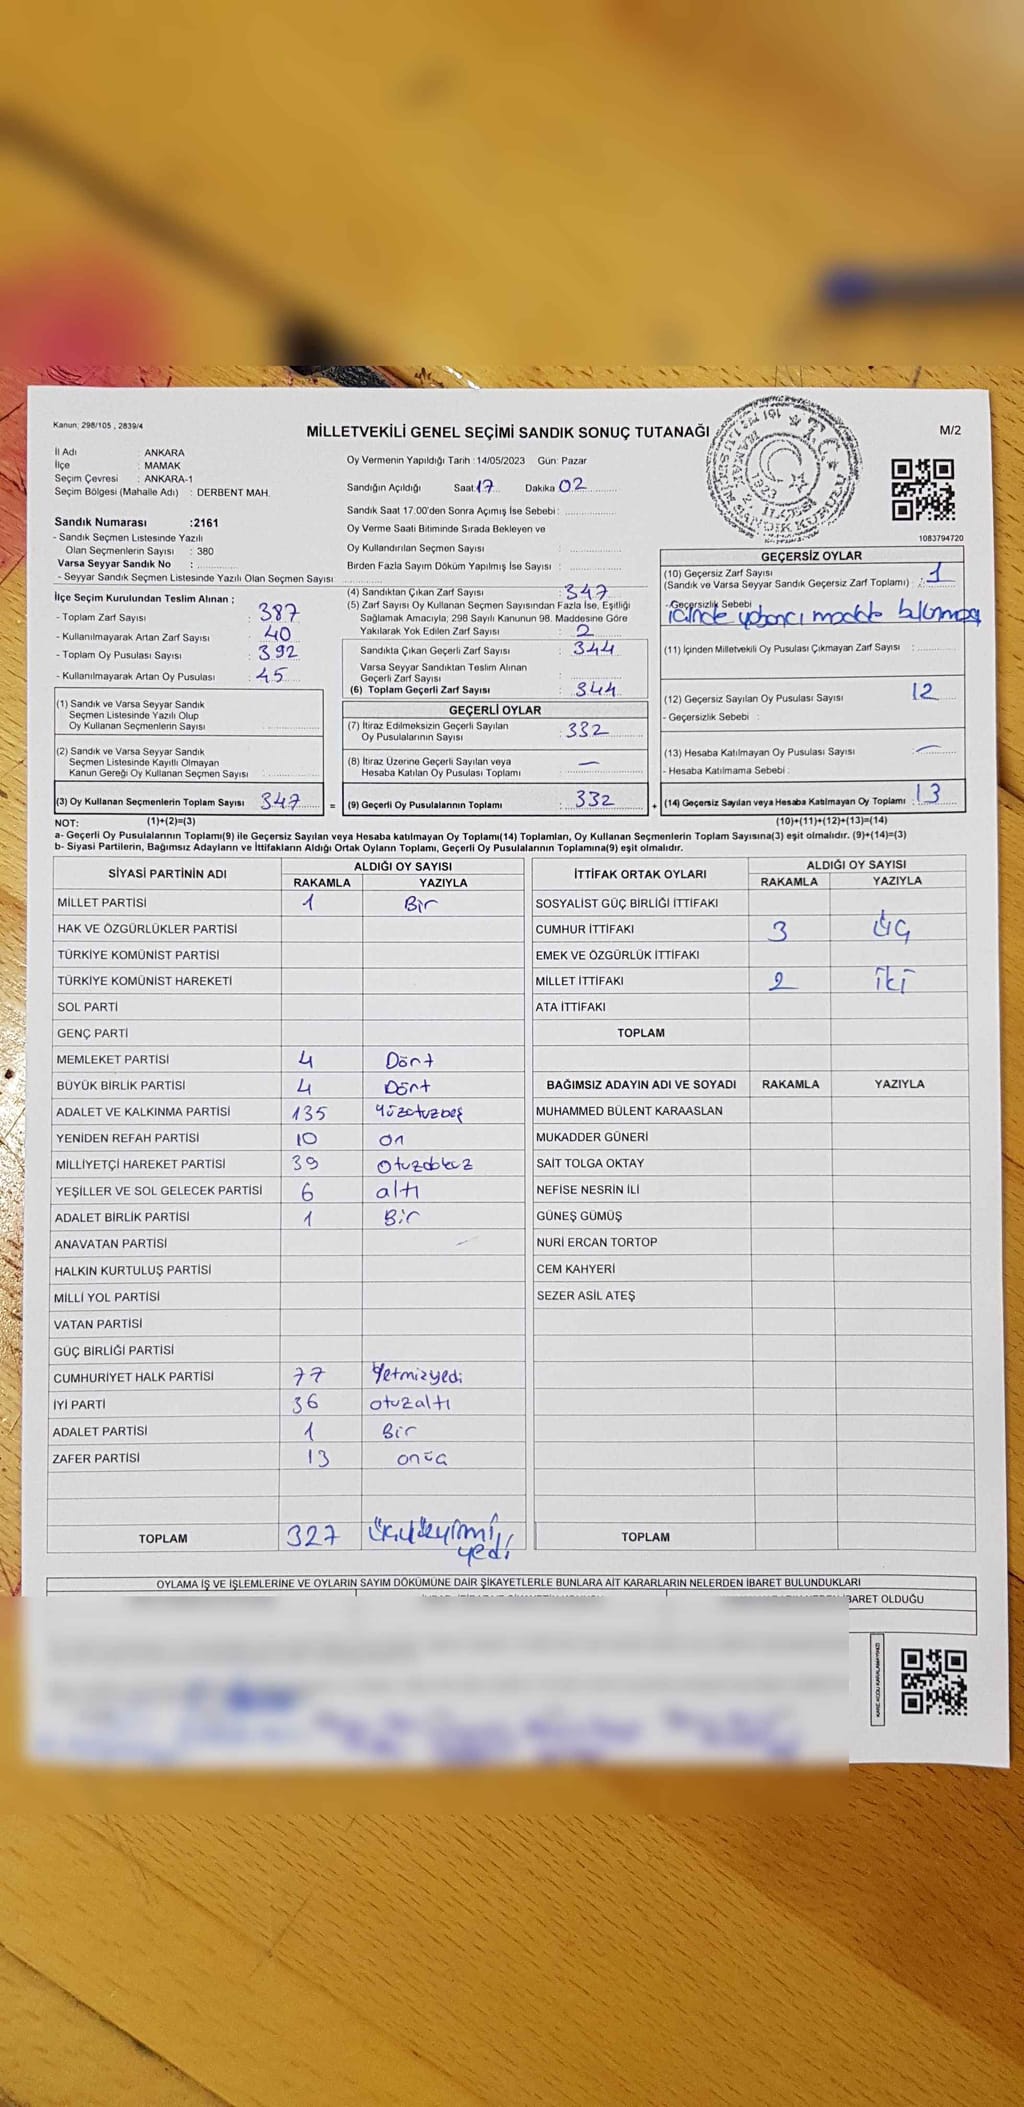 Kanun; 298/105 , 2839/4
MİLLETVEKİLİ GENEL SEÇİMİ SANDIK SONUÇ TUTANAĞI
M/2
İl Adı ANKARA
İlçe : MAMAK
Seçim Çevresi : ANKARA-1
Seçim Bölgesi (Mahalle Adı) : DERBENT MAH.
Sandık Numarası :2161
- Sandık Seçmen Listesinde Yazılı
Olan Seçmenlerin Sayısı : 380
Varsa Seyyar Sandık No :
- Seyyar Sandık Seçmen Listesinde Yazılı Olan Seçmen Sayısı
İlçe Seçim Kurulundan Teslim Alınan ;
- Toplam Zarf Sayısı : 387
- Kullanılmayarak Artan Zarf Sayısı : 40
- Toplam Oy Pusulası Sayısı : 392
- Kullanılmayarak Artan Oy Pusulası : 45
(1) Sandık ve Varsa Seyyar Sandık
Seçmen Listesinde Yazılı Olup
Oy Kullanan Seçmenlerin Sayısı
(2) Sandık ve Varsa Seyyar Sandık
Seçmen Listesinde Kayıtlı Olmayan
Kanun Gereği Oy Kullanan Seçmen Sayısı
(3) Oy Kullanan Seçmenlerin Toplam Sayısı 347 =
Oy Vermenin Yapıldığı Tarih :14/05/2023 Gün: Pazar
Sandığın Açıldığı Saat:17 Dakika 02
Sandık Saat 17.00'den Sonra Açımış İse Sebebi :
Oy Verme Saati Bitiminde Sırada Bekleyen ve
Oy Kullandırılan Seçmen Sayısı
Birden Fazla Sayım Döküm Yapılmış İse Sayısı :
(4) Sandıktan Çıkan Zarf Sayısı : 347
(5) Zarf Sayısı Oy Kullanan Seçmen Sayısından Fazla İse, Eşitliği
Sağlamak Amacıyla; 298 Sayılı Kanunun 98. Maddesine Göre
Yakılarak Yok Edilen Zarf Sayısı : 2
Sandıkta Çıkan Geçerli Zarf Sayısı : 344
Varsa Seyyar Sandıktan Teslim Alınan
Geçerli Zarf Sayısı
(6) Toplam Geçerli Zarf Sayısı : 344
GEÇERLİ OYLAR
(7) İtiraz Edilmeksizin Geçerli Sayılan
Oy Pusulalarının Sayısı : 332
(8) İtiraz Üzerine Geçerli Sayılan veya
Hesaba Katılan Oy Pusulası Toplamı : —
(9) Geçerli Oy Pusulalarının Toplamı : 332 +
1083794720
GEÇERSİZ OYLAR
(10) Geçersiz Zarf Sayısı
(Sandık ve Varsa Seyyar Sandık Geçersiz Zarf Toplamı) : 1
- Geçersizlik Sebebi
içinde yabancı madde bulunması
(11) İçinden Milletvekili Oy Pusulası Çıkmayan Zarf Sayısı :
(12) Geçersiz Sayılan Oy Pusulası Sayısı 12
- Geçersizlik Sebebi :
(13) Hesaba Katılmayan Oy Pusulası Sayısı : —
- Hesaba Katılmama Sebebi :
(14) Geçersiz Sayılan veya Hesaba Katılmayan Oy Toplamı : 13
NOT: (1)+(2)=(3) (10)+(11)+(12)+(13)=(14)
a- Geçerli Oy Pusulalarının Toplamı(9) ile Geçersiz Sayılan veya Hesaba katılmayan Oy Toplamı(14) Toplamları, Oy Kullanan Seçmenlerin Toplam Sayısına(3) eşit olmalıdır. (9)+(14)=(3)
b- Siyasi Partilerin, Bağımsız Adayların ve İttifakların Aldığı Ortak Oyların Toplamı, Geçerli Oy Pusulalarının Toplamına(9) eşit olmalıdır.
SİYASİ PARTİNİN ADI ALDIĞI OY SAYISI
RAKAMLA YAZIYLA
MİLLET PARTİSİ 1 Bir
HAK VE ÖZGÜRLÜKLER PARTİSİ
TÜRKİYE KOMÜNİST PARTİSİ
TÜRKİYE KOMÜNİST HAREKETİ
SOL PARTİ
GENÇ PARTİ
MEMLEKET PARTİSİ 4 Dört
BÜYÜK BİRLİK PARTİSİ 4 Dört
ADALET VE KALKINMA PARTİSİ 135 Yüzotuzbeş
YENİDEN REFAH PARTİSİ 10 on
MİLLİYETÇİ HAREKET PARTİSİ 39 otuzdokuz
YEŞİLLER VE SOL GELECEK PARTİSİ 6 altı
ADALET BİRLİK PARTİSİ 1 Bir
ANAVATAN PARTİSİ
HALKIN KURTULUŞ PARTİSİ
MİLLİ YOL PARTİSİ
VATAN PARTİSİ
GÜÇ BİRLİĞİ PARTİSİ
CUMHURİYET HALK PARTİSİ 77 Yetmişyedi
İYİ PARTİ 36 otuzaltı
ADALET PARTİSİ 1 Bir
ZAFER PARTİSİ 13 onüç
TOPLAM 327 üçyüzyirmi
yedi
İTTİFAK ORTAK OYLARI ALDIĞI OY SAYISI
RAKAMLA YAZIYLA
SOSYALİST GÜÇ BİRLİĞİ İTTİFAKI
CUMHUR İTTİFAKI 3 üç
EMEK VE ÖZGÜRLÜK İTTİFAKI
MİLLET İTTİFAKI 2 iki
ATA İTTİFAKI
TOPLAM
BAĞIMSIZ ADAYIN ADI VE SOYADI RAKAMLA YAZIYLA
MUHAMMED BÜLENT KARAASLAN
MUKADDER GÜNERİ
SAİT TOLGA OKTAY
NEFİSE NESRİN İLİ
GÜNEŞ GÜMÜŞ
NURİ ERCAN TORTOP
CEM KAHYERİ
SEZER ASİL ATEŞ
TOPLAM
OYLAMA İŞ VE İŞLEMLERİNE VE OYLARIN SAYIM DÖKÜMÜNE DAİR ŞİKAYETLERLE BUNLARA AİT KARARLARIN NELERDEN İBARET BULUNDUKLARI
İBARET OLDUĞU
KARE KODU KARALAMAYINIZ